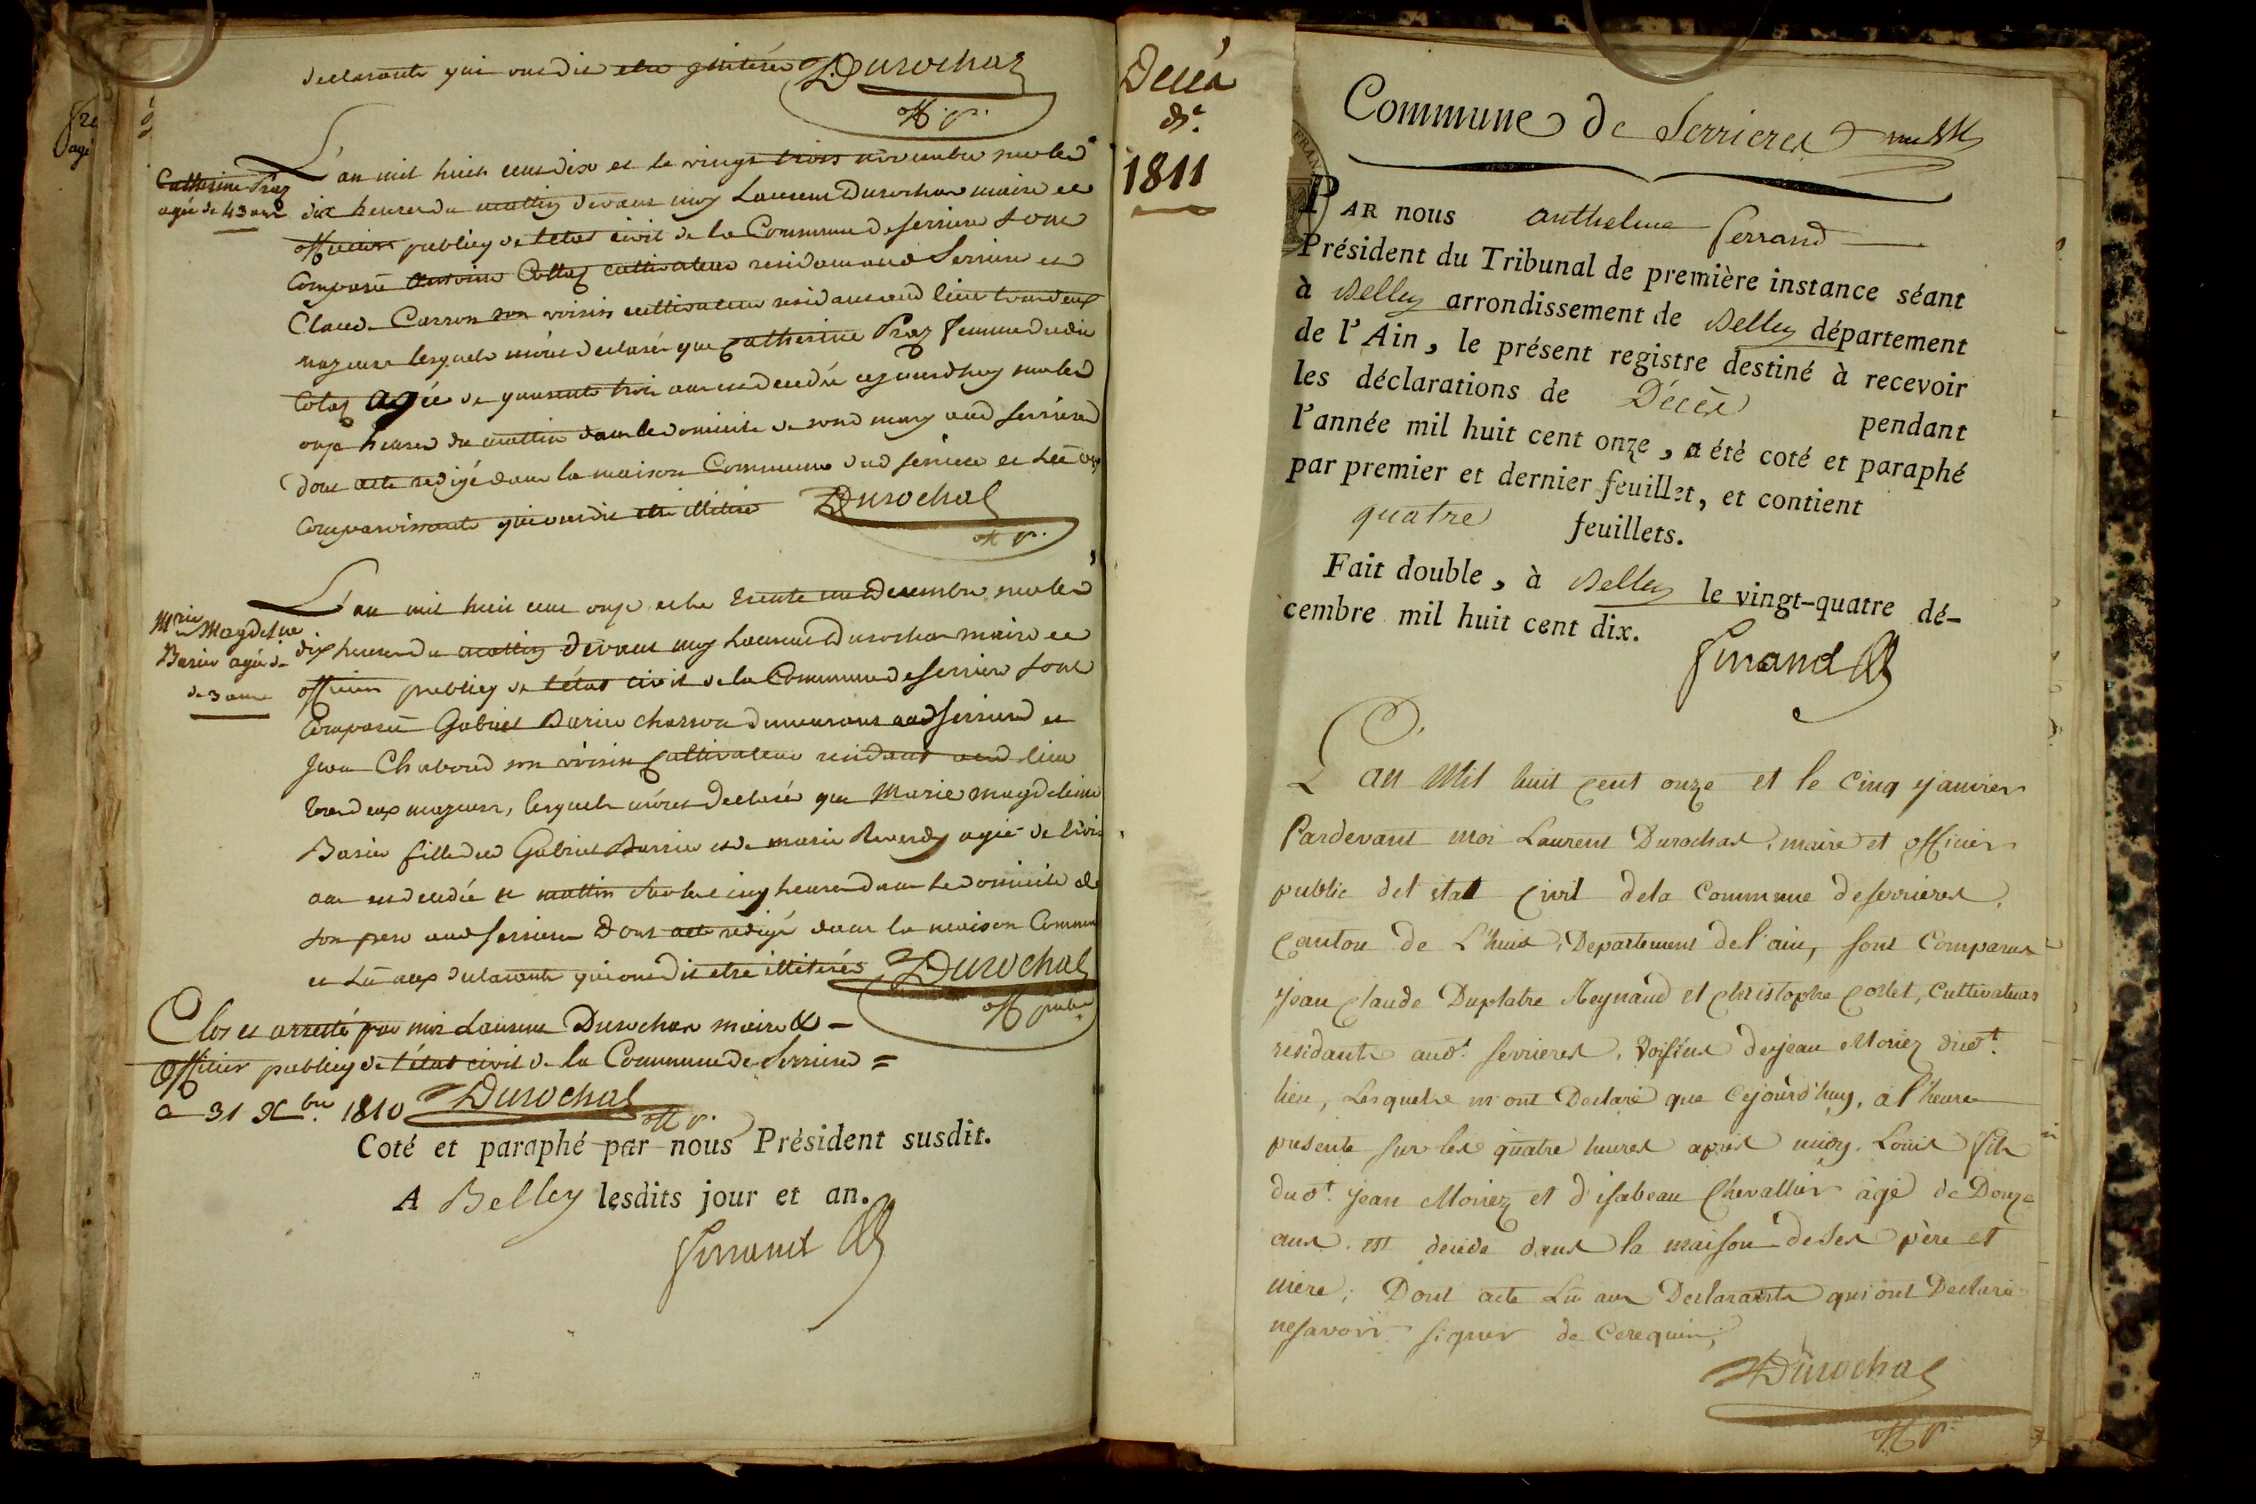 declarants qui ont dit etre Durochat
off p.
Catherine Praz
agée de 43 ans
L'an mil huit cent dix et le vingt trois novembre sur les
dix heures du mattin devant moy Laurent Durochat maire et
officier publicq de l'état civil de la Commune de Serriere sont
Comparu Antoine Collaz cultivateur residant aud Serriere et
Claude Carron son voisin cultivateur residant aud lieu tous deux
majeurs lesquels m'ont declaré que Catherine Praz femme dudit
Colaz agée de quarante trois ans est decedée cejourdhuy sur les
onze heures du mattin dans le domicile de sond mary aud Serriere
dont acte redigé dans la maison Commune dud Serriere et Lû aux
Comparoissants qui ont dit etre illitéré Durochat
off p.
Mrie Magdelne
Barier agée de
de 3 ans
L'an mil huit cent onze et le trente un Decembre sur les
dix heures du mattin devant moy Laurent Durochat maire et
officier publicq de l'état civil de la Commune de Serriere sont
Comparu Gabriel Barier charron demeurant aud Serriere et
Jean Chaboud son voisin Cultivateur residant aud lieu
tous deux majeurs, lesquels m'ont declaré que Marie magdeleine
Barier fille dud Gabriel Barrier et de marie Reverdy agée de trois
ans est decedée ce mattin sur les cinq heures dans le domicile de
son pere aud Serriere Dont acte redigé dans la maison Commune
et Lû aux declarants qui ont dit etre illiterés Durochat
off public
Clos et arresté par moi Laurent Durochat maire &
Officier publicq de l'état civil de la Commune de Serriere =
a 31 Xbre 1810 Durochat
off p.
Coté et paraphé par nous Président susdit.
A Belley lesdits jour et an.
Ferrand
Décés
de
1811
Commune de Serrieres
PAR nous anthelme ferrand
Président du Tribunal de première instance séant
à Belley arrondissement de Belley département
de l'Ain, le présent registre destiné à recevoir
les déclarations de Décès pendant
l'année mil huit cent onze, a été coté et paraphé
par premier et dernier feuillet, et contient
quatre feuillets.
Fait double, à Belley le vingt-quatre dé-
cembre mil huit cent dix.
Ferrand
L'an Mil huit cent onze et le Cinq janvier
Pardevant moi Laurent Durochat, maire et officier
public del etat Civil dela Commune deserrieres,
Canton de L'huis, Departement del'ain, sont Comparus
Jean Claude Duplatre Reynaud et Christophe Collet, Cultivateurs
residants audt. serrieres, Voisins dejean Moriez dudt.
lieu, Lesquels m'ont Declaré que Cejourd'huy, a l'heure
presente sur les quatre heures après midy, Louis fils
dudt. jean Moriez et d'isabeau Chevallier âgé de Douze
ans, est decédé dans la maison deses père et
mère; Dont acte Lû aux Declarants qui ont Declaré
nesavoir signer de Cerequis;
Durochat
off p.